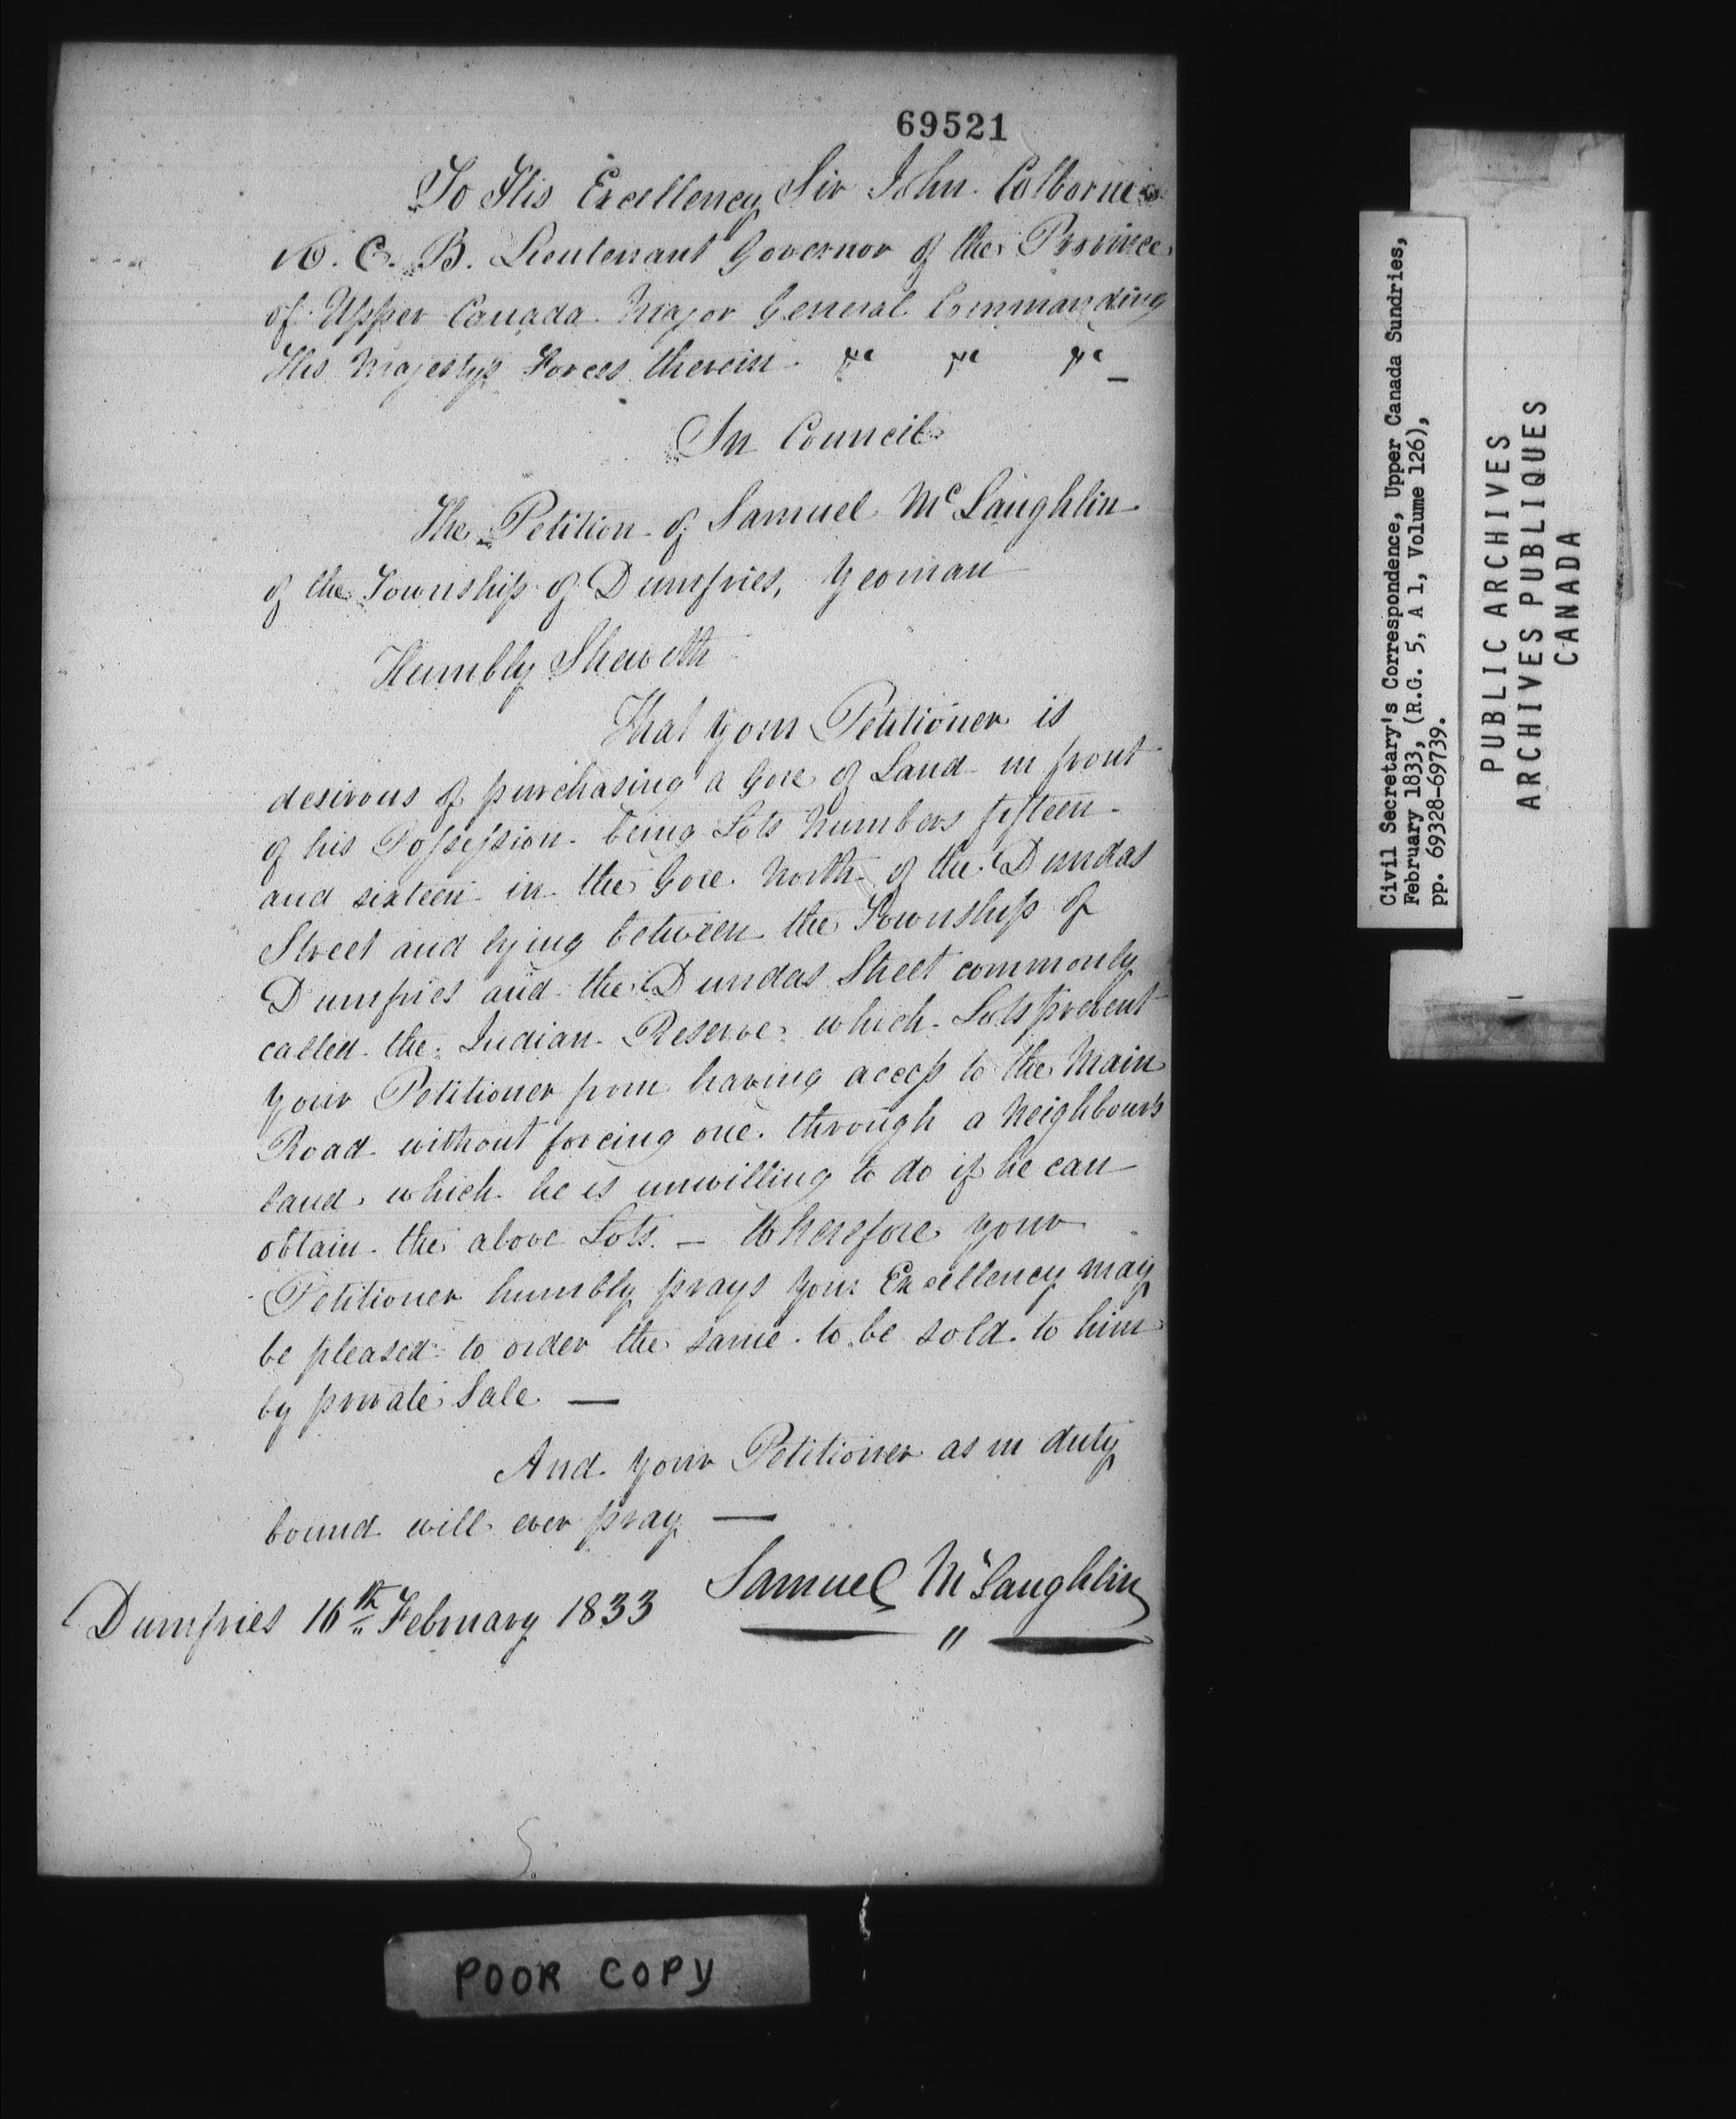 69521
To His Excellency Sir John Colborne
K. C. B. Lieutenant Governor of the Province
of Upper Canada Major General Commanding
His Majestys Forces therein &c &c &c
In Council
The Petition of Samuel McLaughlin
of the Township of Dumfries, Yeoman
Humbly Sheweth
That your Petitioner is
desirous of purchasing a Gore of Land in front
of his Possession being Lots Numbers fifteen
and sixteen in the Gore North of the Dundas
Street and lying between the Township of
Dumfries and the Dundas Street commonly
called the Indian Reserve which Lots prevent
your Petitioner from having access to the Main
Road without forcing one through a Neighbour's
land which he is unwilling to do if he can
obtain the above Lots. — Wherefore your
Petitioner humbly prays your Excellency may
be pleased to order the same to be sold to him
by private Sale —
And your Petitioner as in duty
bound will ever pray —
Samuel McLaughlin
Dumfries 16th February 1833
POOR COPY
Civil Secretary's Correspondence, Upper Canada Sundries,
February 1833, (R.G. 5, A 1, Volume 126),
pp. 69328-69739.
PUBLIC ARCHIVES
ARCHIVES PUBLIQUES
CANADA